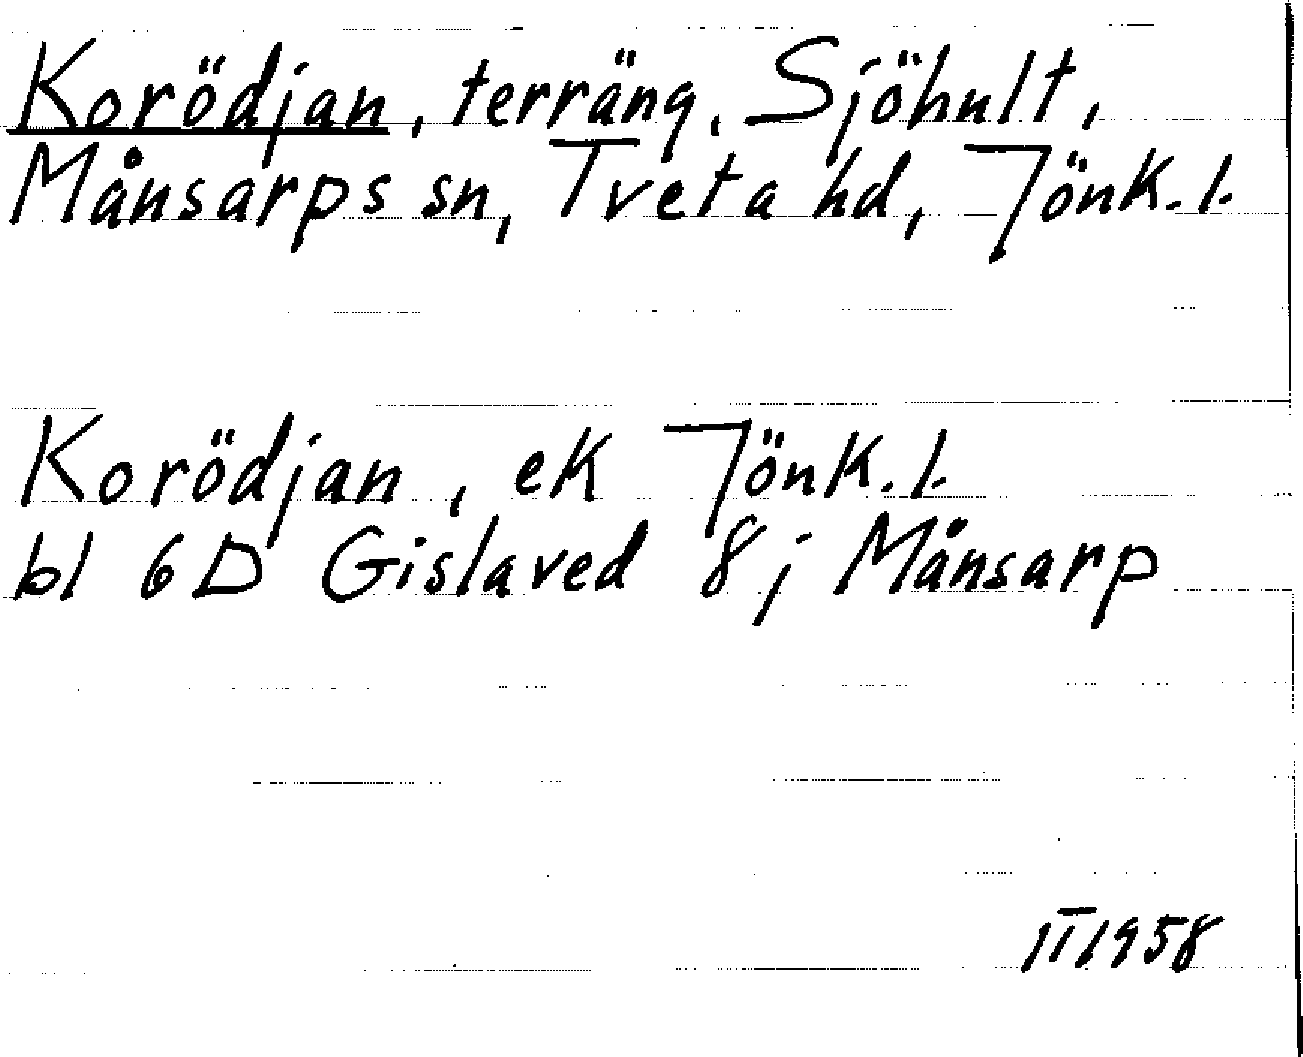 Korödjan, terräng, Sjöhult,
Månsarps sn, Tveta hd, Jönk. l.
Korödjan, ek Jönk. l.
bl 6D Gislaved 8j Månsarp
1958